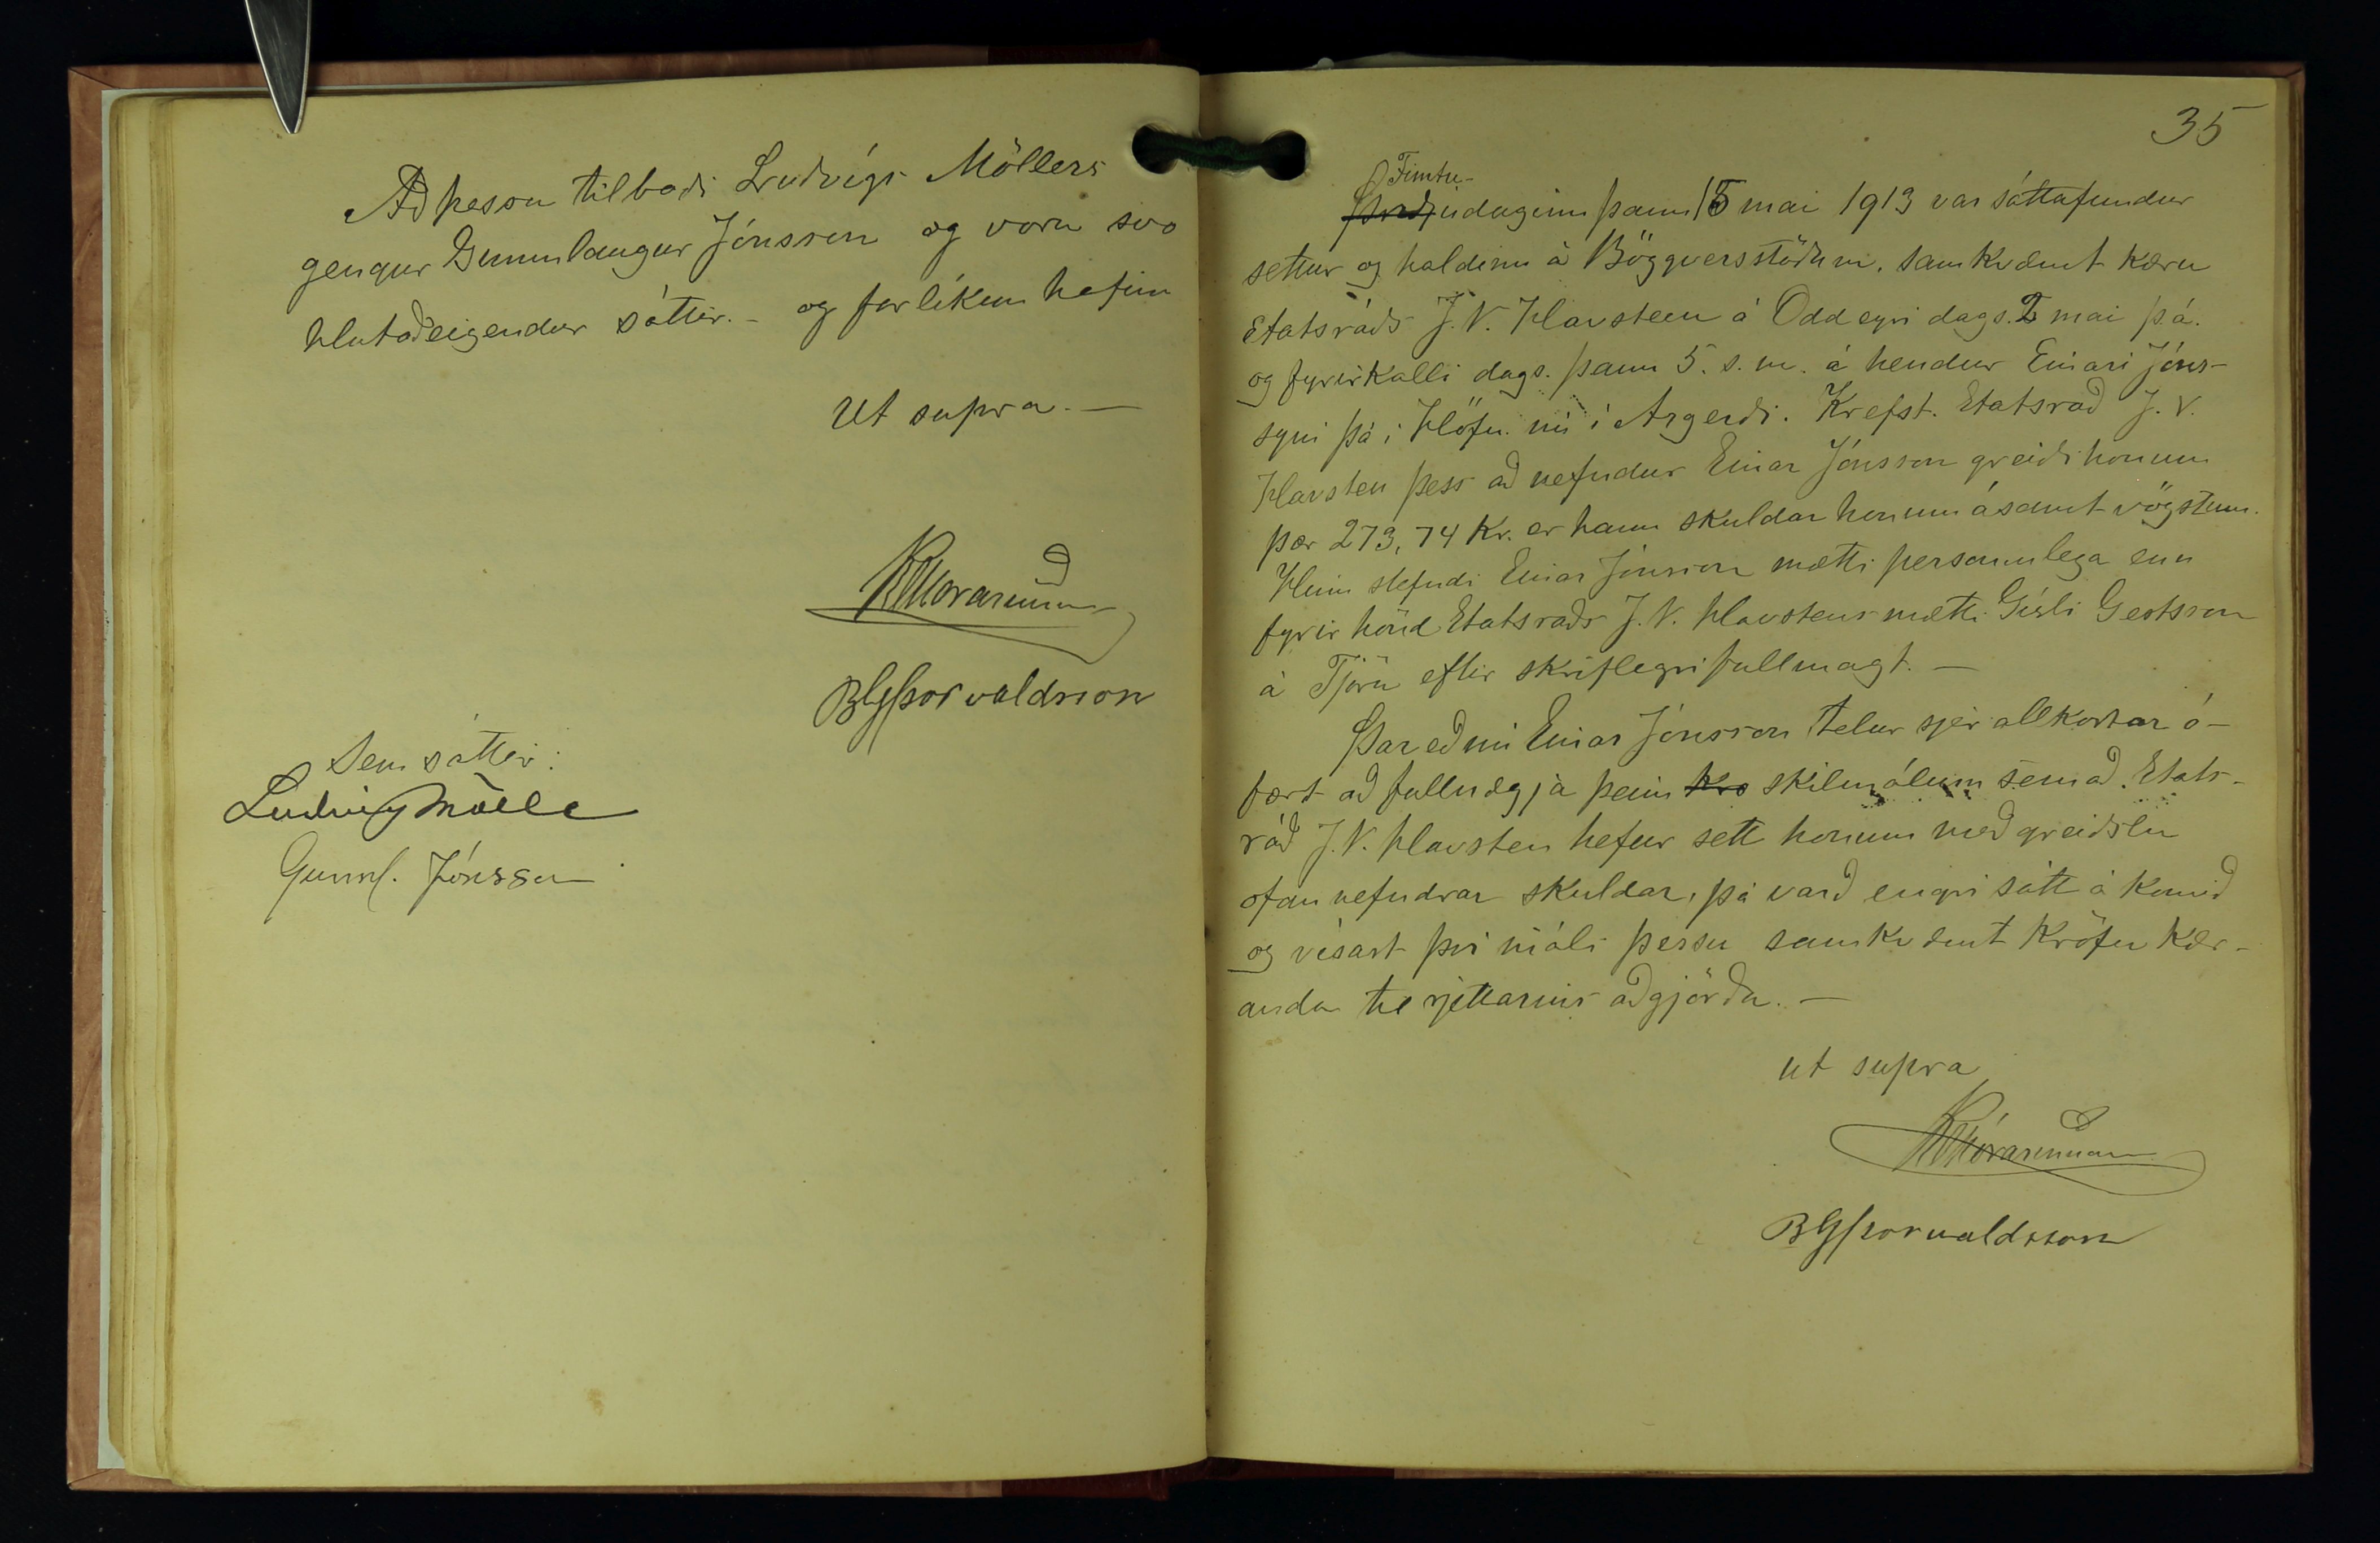 Að þessu tilboði Ludvígs Möllers
gengur Gunnlaugur Jónsson og voru svo
hlutaðeigendur sáttir. - og forlíkun hefun
Ut supra. -
BGÞorvaldsson
Sem sáttir:
Ludvig Möller
Gunnl. Jónsson
35
Fimtu-
Þriðjudaginn þann 15 mai 1913 var sáttafundur
settur og haldinn á Böggversstöðum, samkvæmt kæru
Etatsráðs J. V. Havsteen á Oddeyri dags. 2 mai þ.á.
og fyrirkalli dags. þann 5. s. m. á hendur Einari Jóns-
syni þá í Höfn nú í Argerði. Krefst Etatsráð J. V.
Havsten þess að nefndur Einar Jónsson greiði honum
þær 273,74 Kr. er hann skuldar honum ásamt vögstum.
Hinn stefndi Einar Jónsson mætti persónulega enn
fyrir hönd Etatsráðs J. V. Havstens mætti Gísli Gestsson
á Tjörn eftir skriflegri fullmagt. -
Þareð nú Einar Jónsson telur sjer allkostar ó-
fært að fullnægja þeim kro skilmálum sem að Etats-
ráð J. V. Havsten hefur sett honum með greiðslu
ofannefndrar skuldar, þá varð engri sátt á komið
og vísast því máli þessu samkvæmt kröfu kær-
anda til rjettarins aðgjörða. -
ut supra
BGÞorvaldsson